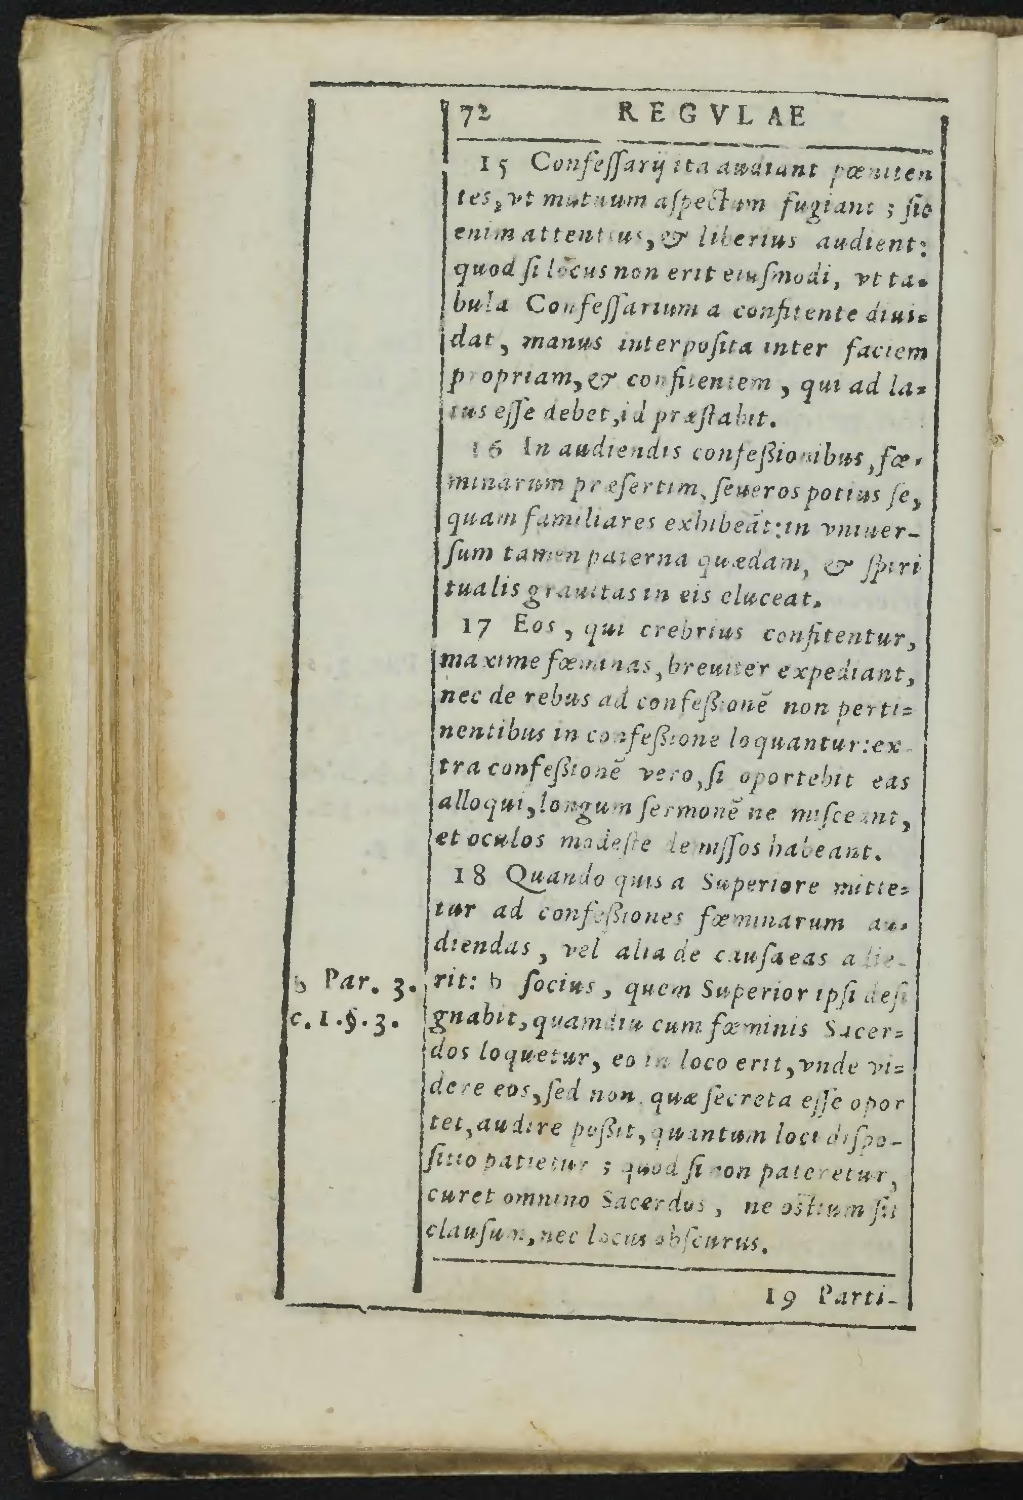 72 REGVLAE
15 Confeſſarij ita audiant pœniten
tes, vt mutuum aſpectum fugiant ; ſic
enim attentius, & liberius audient:
quod ſi locus non erit eiuſmodi, vt ta-
bula Confeſſarium a confitente diui=
dat, manus interpoſita inter faciem
propriam, & confitentem, qui ad la=
tus eſſe debet, id præſtabit.
16 In audiendis confeßionibus, fœ-
minarum præſertim, ſeueros potius ſe,
quam familiares exhibeāt: in vniuer-
ſum tamen paterna quædam, & ſpiri
tualis grauitas in eis eluceat.
17 Eos, qui crebrius confitentur,
maxime fœminas, breuiter expediant,
nec de rebus ad confeßionē non perti=
nentibus in confeßione loquantur: ex-
tra confeßionē vero, ſi oportebit eas
alloqui, longum ſermonē ne miſceant,
et oculos modeſte demiſſos habeant.
18 Quando quis a Superiore mitte=
tur ad confeßiones fœminarum au-
diendas, vel alia de cauſa eas adie-
rit: b ſocius, quem Superior ipſi deſi
gnabit, quamdiu cum fœminis Sacer=
dos loquetur, eo in loco erit, vnde vi=
dere eos, ſed non, quæ ſecreta eſſe opor
tet, audire poßit, quantum loci diſpo-
ſitio patietur ; quod ſi non pateretur,
curet omnino Sacerdos, ne oſtium ſit
clauſum, nec locus obſcurus.
b Par. 3.
c. 1. §. 3.
19 Parti-